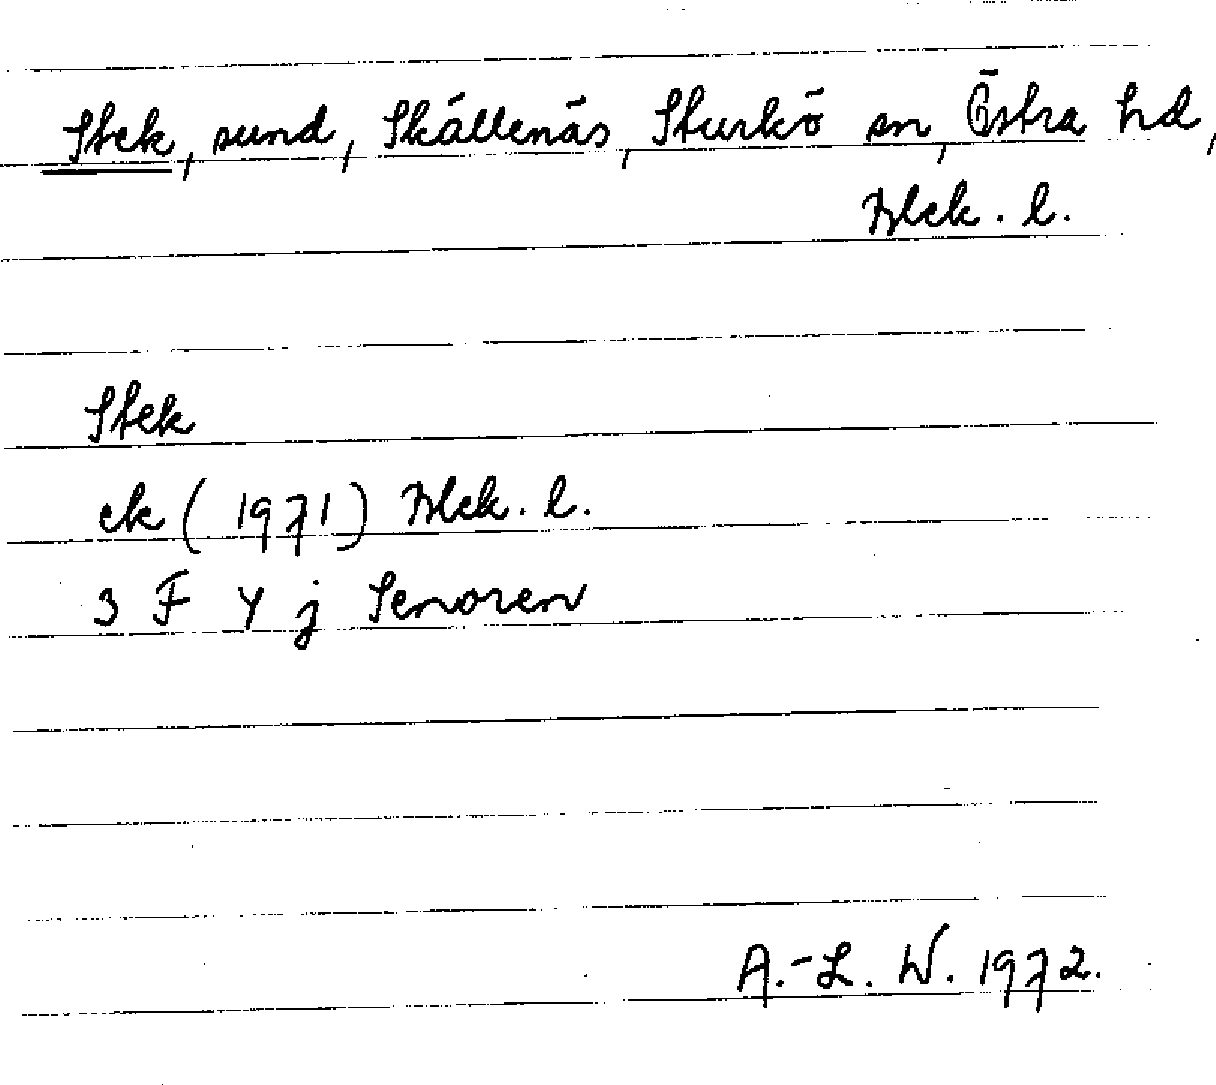 Stek, sund, Skällenäs, Sturkö sn, Östra hd,
Blek. l.
Stek
ek (1971) Blek. l.
3 F Y j Senoren
A.-L. W. 1972.